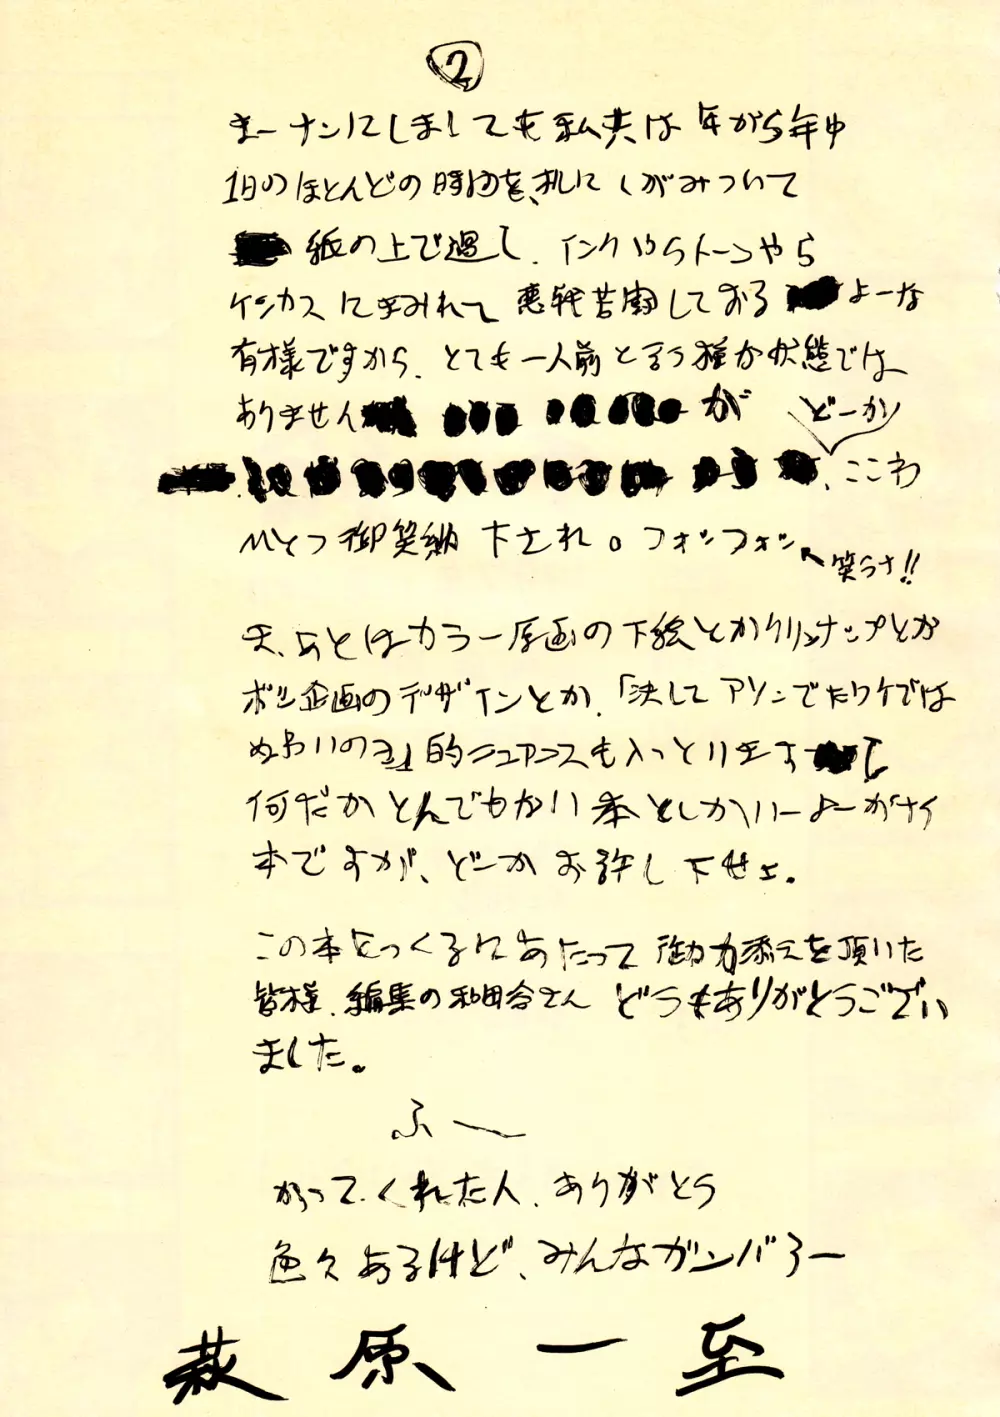 2
まーナンにしましても私共は年がら年中
1日のほとんどの時間を、机にしがみついて
紙の上で過し、インクやらトーンやら
ケシカスにまみれて悪戦苦闘しておるよーな
有様ですから、とても一人前と言う種な状態では
ありませんが どーか
、ここわ
ひとつ御笑納下され。フォンフォン
笑うナ!!
ま、あとはカラー原画の下絵とかクリンナップとか
ボツ企画のデザインとか、「決してアソンでたワケでは
ぬわいのョ」的ニュアンスも入っとりまして
何だかとんでもない本としかいーよーがナイ
本ですが、どーかお許し下せェ。
この本をつくるにあたって御力添えを頂いた
皆様、編集の和田合さん どうもありがとうござい
ました。
ふー
かってくれた人、ありがとう
色々あるけど、みんなガンバろー
萩原一至